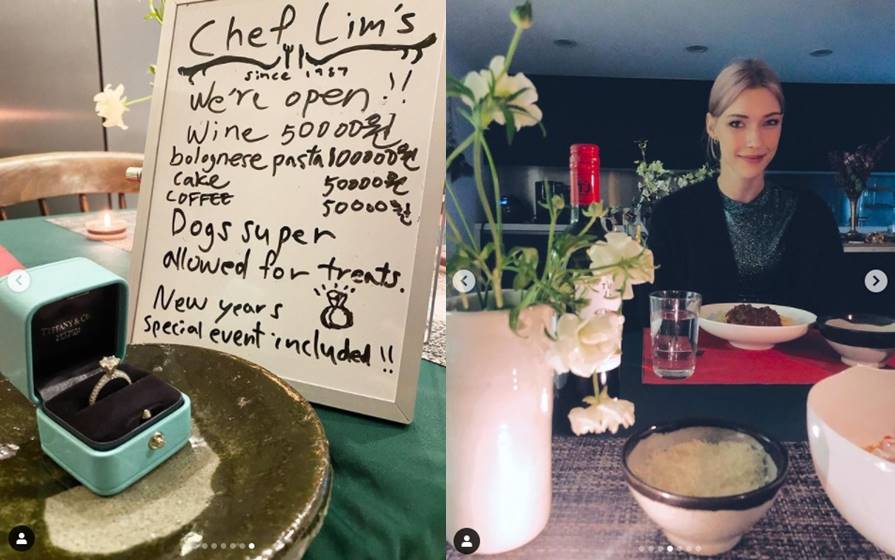 Chef Lim's
since 1987
We're open!!
Wine 50000원
bolognese pasta 100000원
cake 50000원
COFFEE 50000원
Dogs super
allowed for treats.
New years
special event included!!
TIFFANY & CO.